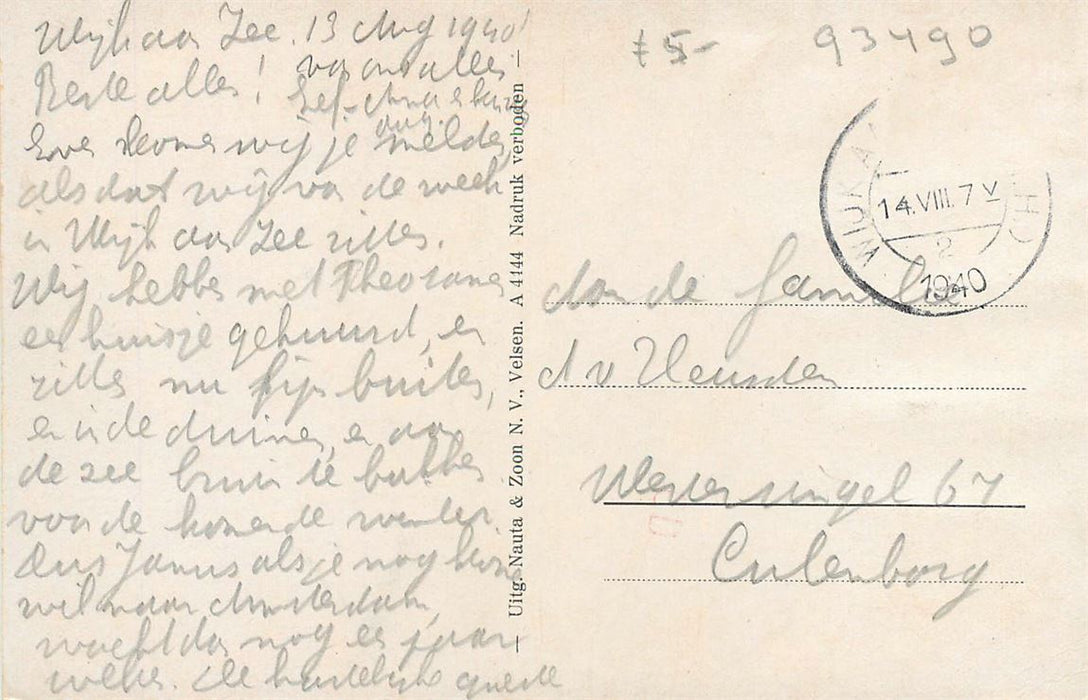 Wijk aan Zee. 13 Aug 1940
Beste alles! van ons alles
Even komen wij je melden
als dat wij van de week
in Wijk aan Zee zitten.
Wij hebben met Theo samen
een huisje gehuurd, en
zitten nu fijn buiten,
en in de duinen, en aan
de zee bruin te bakken
voor de komende winter.
Dus Janus als je nog komen
wil naar Amsterdam,
wacht dan nog een paar
weken. De hartelijke groeten
— Uitg. Nauta & Zoon N. V., Velsen. A 4144 Nadruk verboden —
£ 5-
93490
WIJK A
14.VIII.7 V
2
1940
Aan de familie
A v Heusden
Westersingel 67
Culenborg